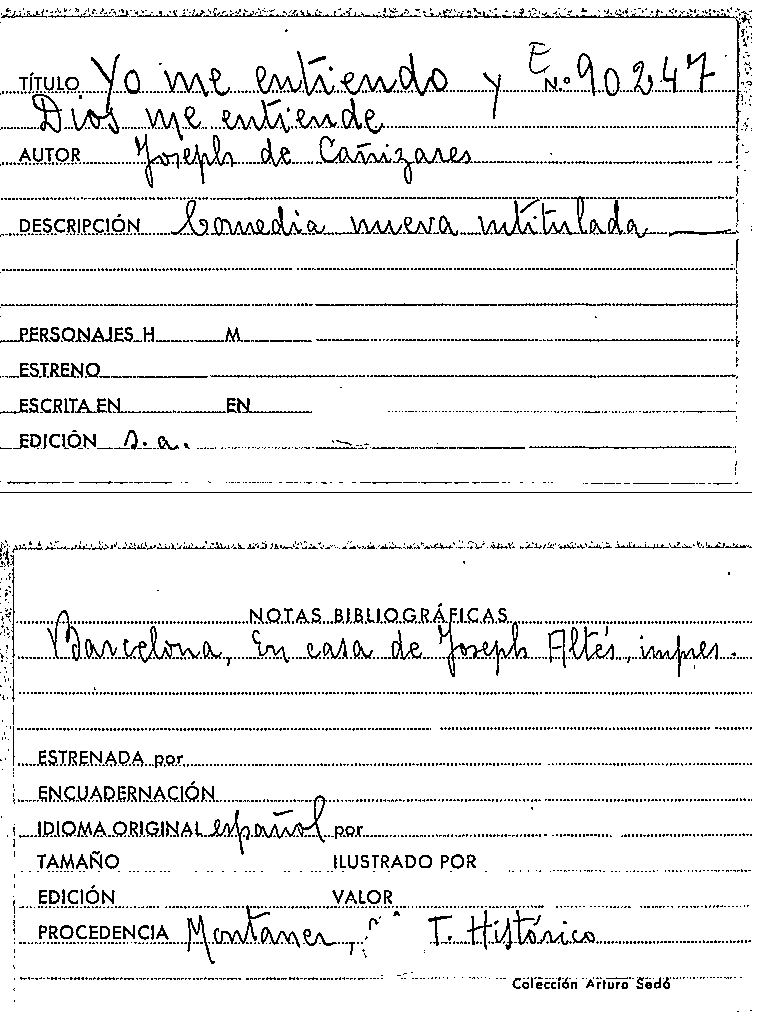 TÍTULO Yo me entiendo y E N.º 90247
Dios me entiende
AUTOR Joseph de Cañizares
DESCRIPCIÓN Comedia nueva intitulada ——
PERSONAJES H M
ESTRENO
ESCRITA EN EN
EDICIÓN s.a.
NOTAS BIBLIOGRÁFICAS
Barcelona, En casa de Joseph Altés, impres.
ESTRENADA por
ENCUADERNACIÓN
IDIOMA ORIGINAL español por
TAMAÑO ILUSTRADO POR
EDICIÓN VALOR
PROCEDENCIA Montaner, T. Histórico
Colección Arturo Sedó